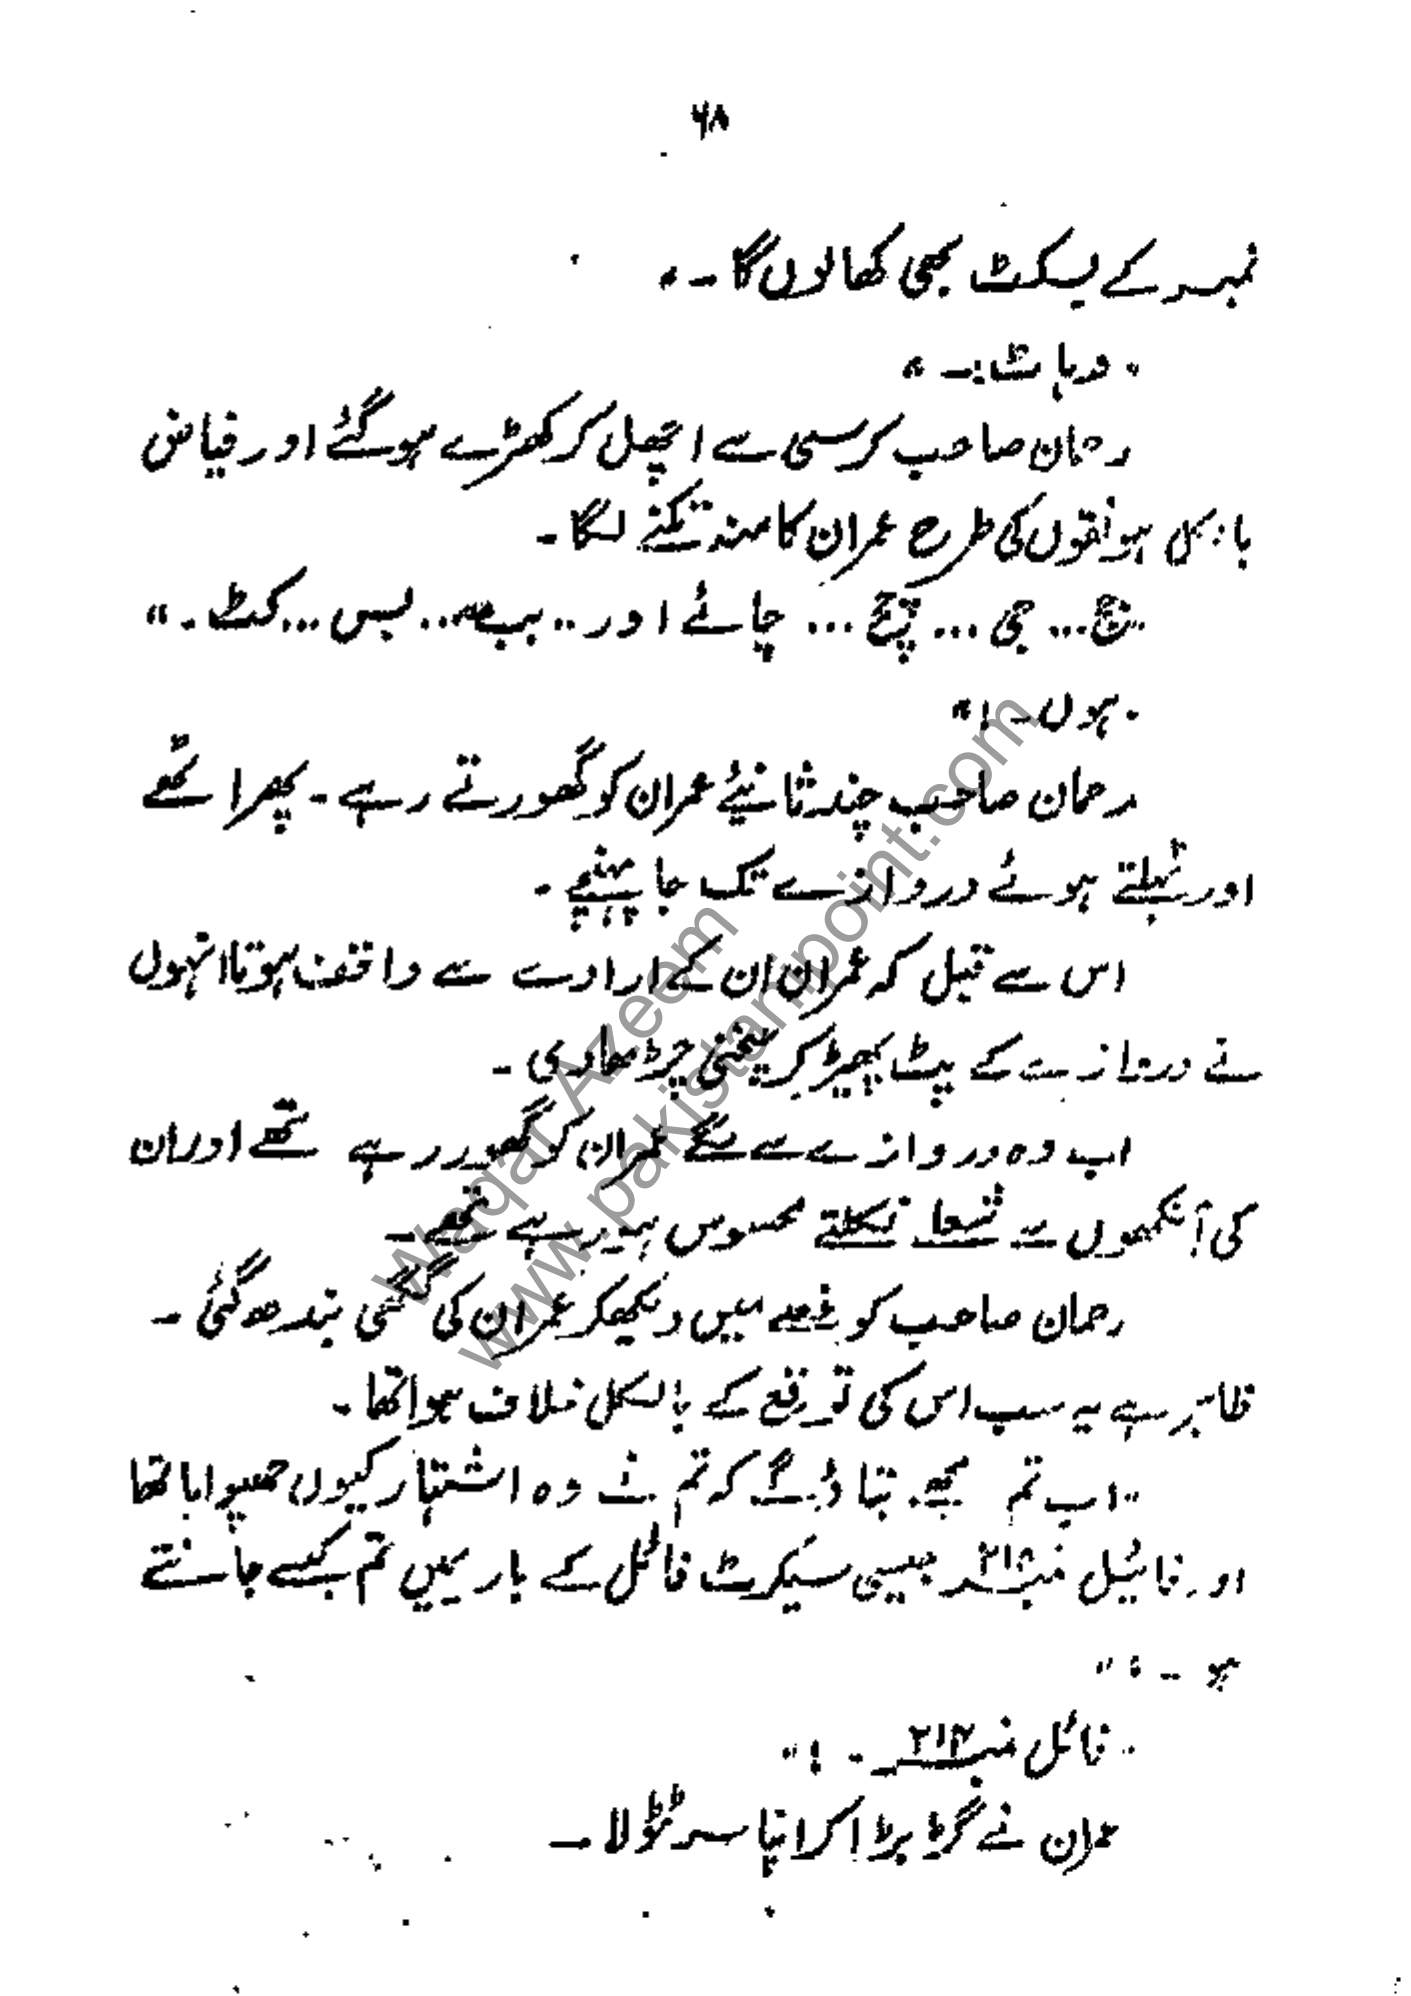 ۶۸
نمبر کے بسکٹ بھی کھالوں گا۔"
"وہاٹ۔"
رحمان صاحب کرسی سے اچھل کر کھڑے ہوگئے اور فیاض
بالکل ہونقوں کی طرح عمران کا منہ تکنے لگا۔
"ج... جی... چچ... چائے اور.. بب... بس... کٹ۔"
"ہوں۔!"
رحمان صاحب چند ثانیئے عمران کو گھورتے رہے۔ پھر اٹھے
اور ٹہلتے ہوئے دروازے تک جا پہنچے۔
اس سے قبل کہ عمران ان کے ارادے سے واقف ہوتا انہوں
نے دروازے کے پٹ بھیڑ کر چٹخنی چڑھا دی۔
اب وہ دروازے سے لگے عمران کو گھور رہے تھے اور ان
کی آنکھوں سے شعلے نکلتے محسوس ہو رہے تھے۔
رحمان صاحب کو غصے میں دیکھ کر عمران کی گھگھی بندھ گئی۔
ظاہر ہے یہ سب اس کی توقع کے بالکل خلاف ہوا تھا۔
"اب تم مجھے بتاؤ گے کہ تم نے وہ اشتہار کیوں چھپوایا تھا
اور فائیل نمبر جیسی سیکرٹ فائل کے بارے میں تم کیسے جانتے
ہو۔؟"
"فائل نمبر ۲۱۲۔!"
عمران نے گڑبڑا کر اپنا سر ٹٹولا۔
Waqar Azeem
www.pakistanipoint.com